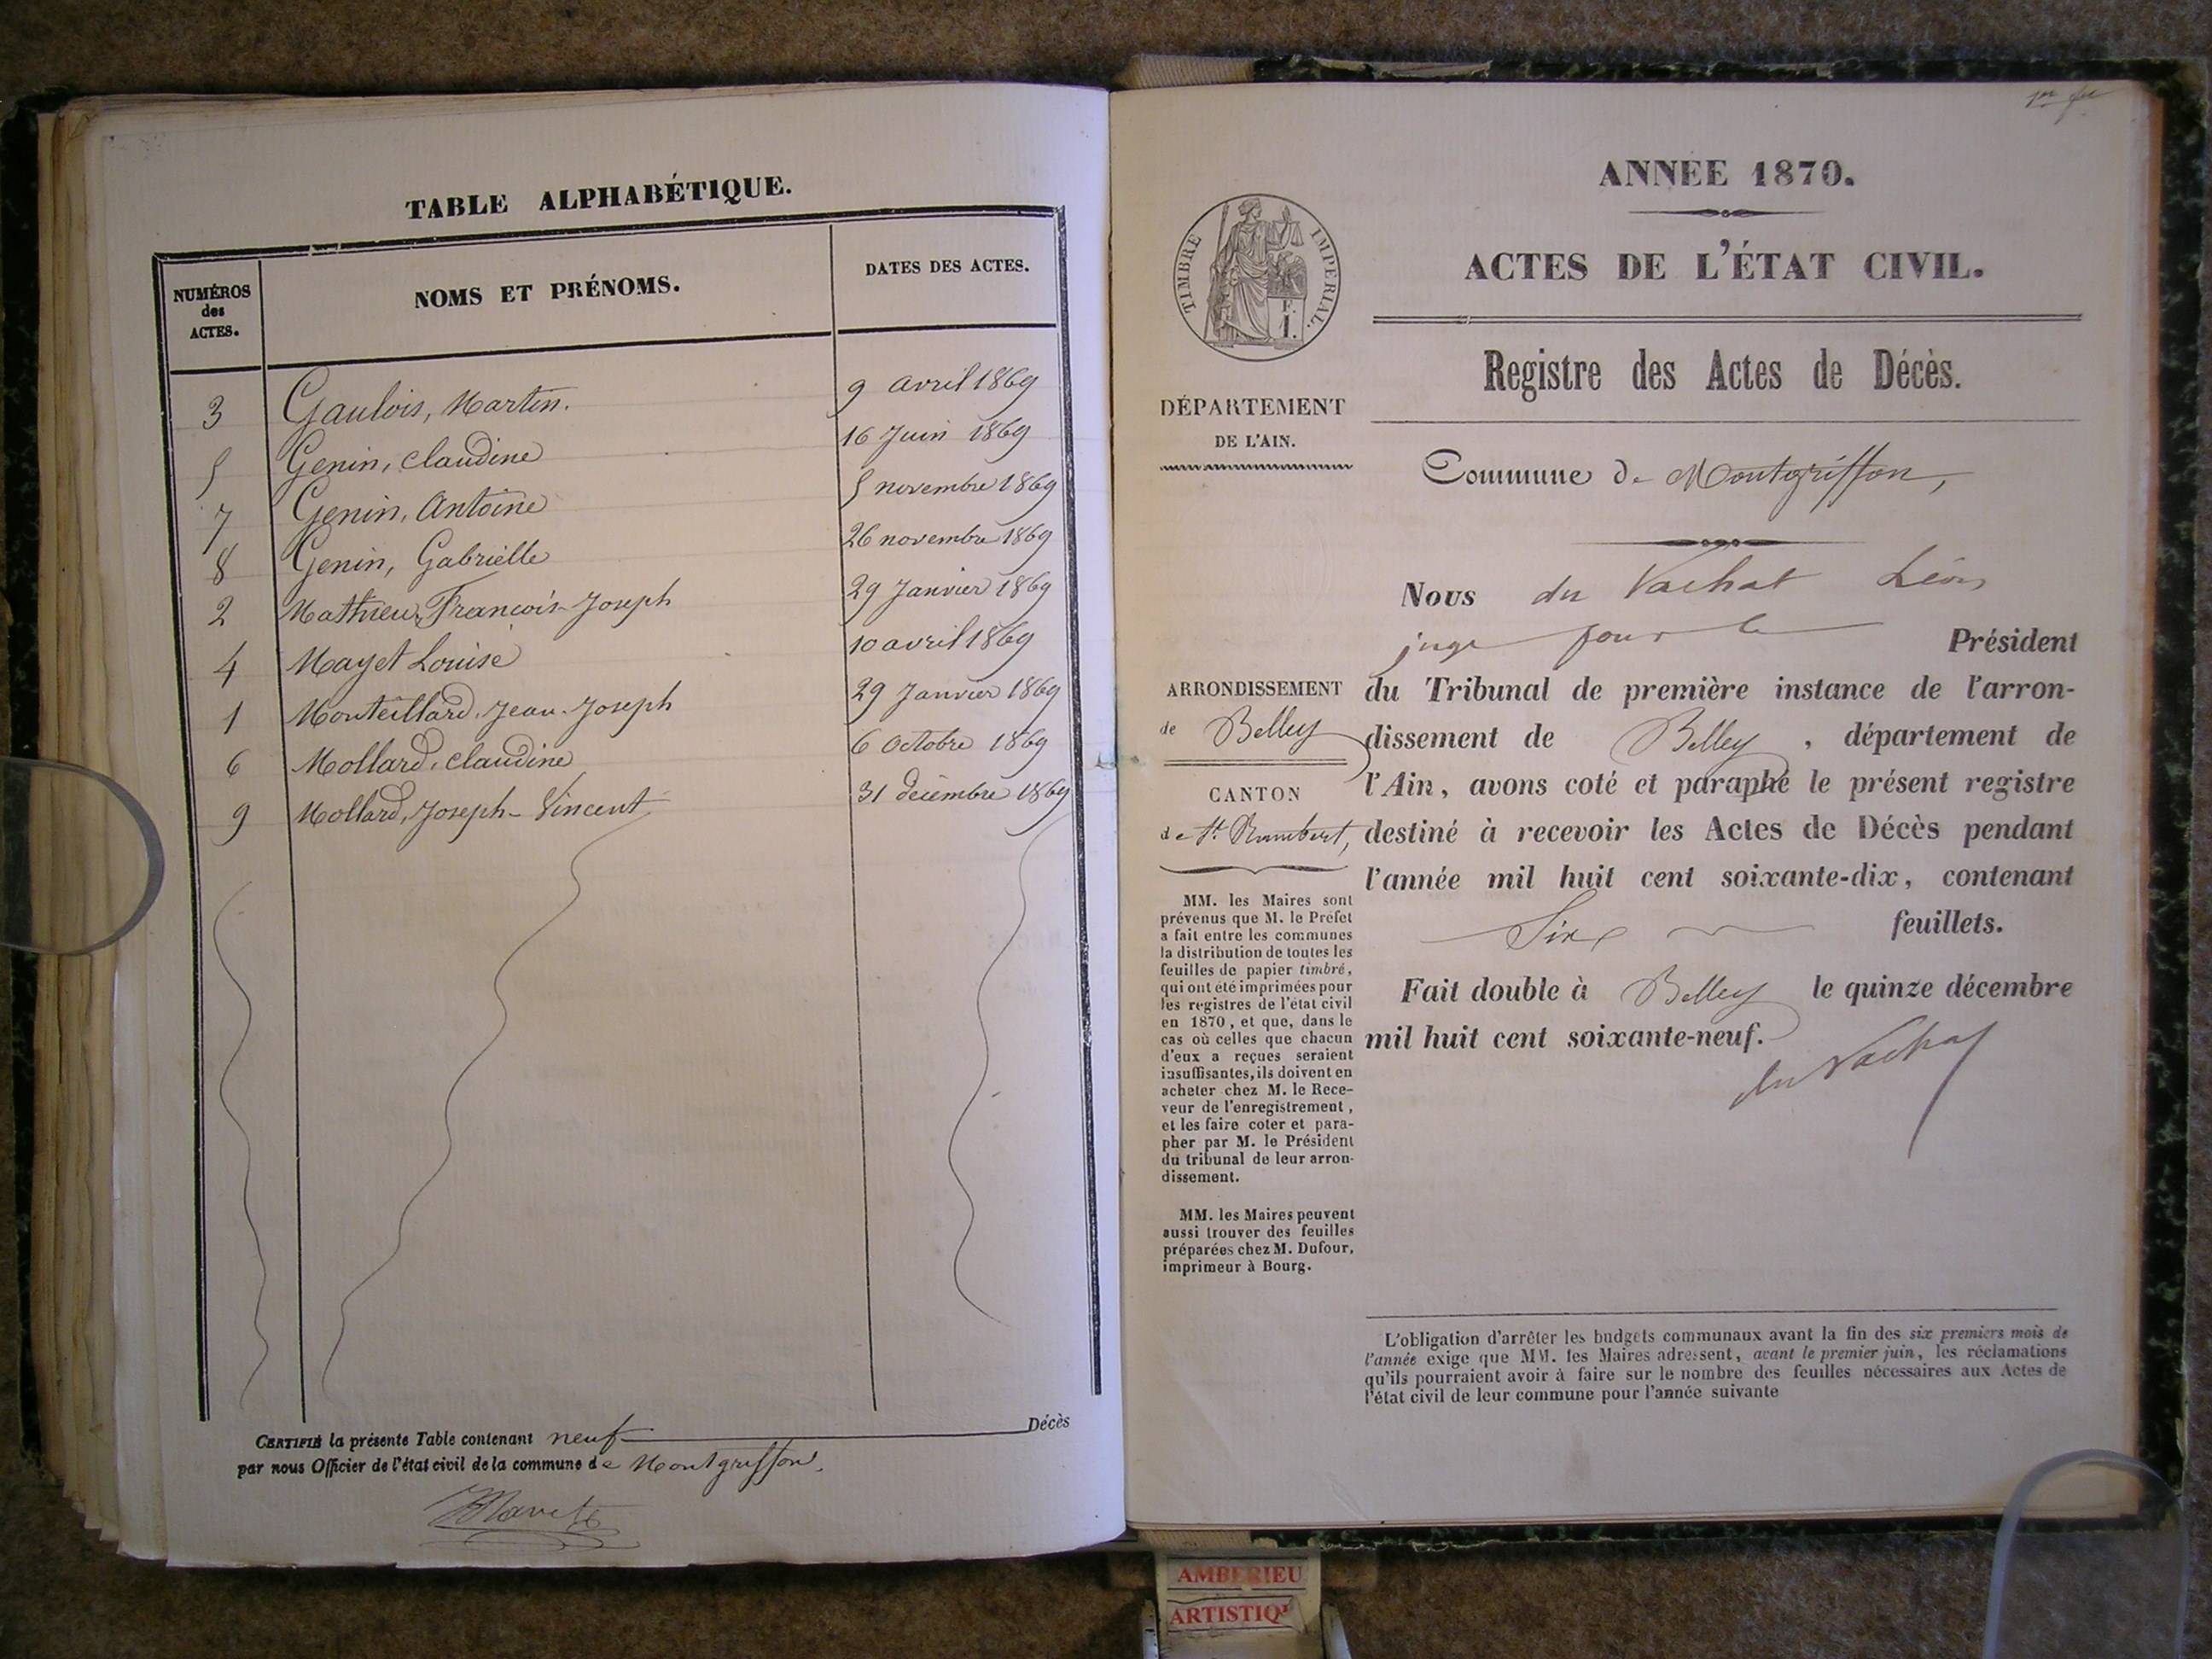 TABLE ALPHABÉTIQUE.
NUMÉROS des ACTES. NOMS ET PRÉNOMS. DATES DES ACTES.
3 Gaulois, Martin. 9 avril 1869
5 Genin, Claudine 16 Juin 1869
7 Genin, Antoine 5 novembre 1869
8 Genin, Gabrielle 26 novembre 1869
2 Mathieu, François-Joseph 29 Janvier 1869
4 Mayet Louise 10 avril 1869
1 Monteillard, Jean-Joseph 29 Janvier 1869
6 Mollard, Claudine 6 Octobre 1869
9 Mollard, Joseph-Vincent 31 décembre 1869
CERTIFIÉ la présente Table contenant neuf Décès
par nous Officier de l'état civil de la commune de Montgriffon.
TIMBRE IMPERIAL.
F.
1.
DÉPARTEMENT
DE L'AIN.
ARRONDISSEMENT
de Belley
CANTON
de St. Rambert,
MM. les Maires sont
prévenus que M. le Préfet
a fait entre les communes
la distribution de toutes les
feuilles de papier timbré,
qui ont été imprimées pour
les registres de l'état civil
en 1870, et que, dans le
cas où celles que chacun
d'eux a reçues seraient
insuffisantes, ils doivent en
acheter chez M. le Rece-
veur de l'enregistrement,
et les faire coter et para-
pher par M. le Président
du tribunal de leur arron-
dissement.
MM. les Maires peuvent
aussi trouver des feuilles
préparées chez M. Dufour,
imprimeur à Bourg.
ANNÉE 1870.
ACTES DE L'ÉTAT CIVIL.
Registre des Actes de Décès.
Commune de Montgriffon,
Nous du Vachat Léon
juge pour le Président
du Tribunal de première instance de l'arron-
dissement de Belley, département de
l'Ain, avons coté et paraphé le présent registre
destiné à recevoir les Actes de Décès pendant
l'année mil huit cent soixante-dix, contenant
Six feuillets.
Fait double à Belley le quinze décembre
mil huit cent soixante-neuf.
du Vachat
L'obligation d'arrêter les budgets communaux avant la fin des six premiers mois de
l'année exige que MM. les Maires adressent, avant le premier juin, les réclamations
qu'ils pourraient avoir à faire sur le nombre des feuilles nécessaires aux Actes de
l'état civil de leur commune pour l'année suivante
AMBERIEU
ARTISTIQ